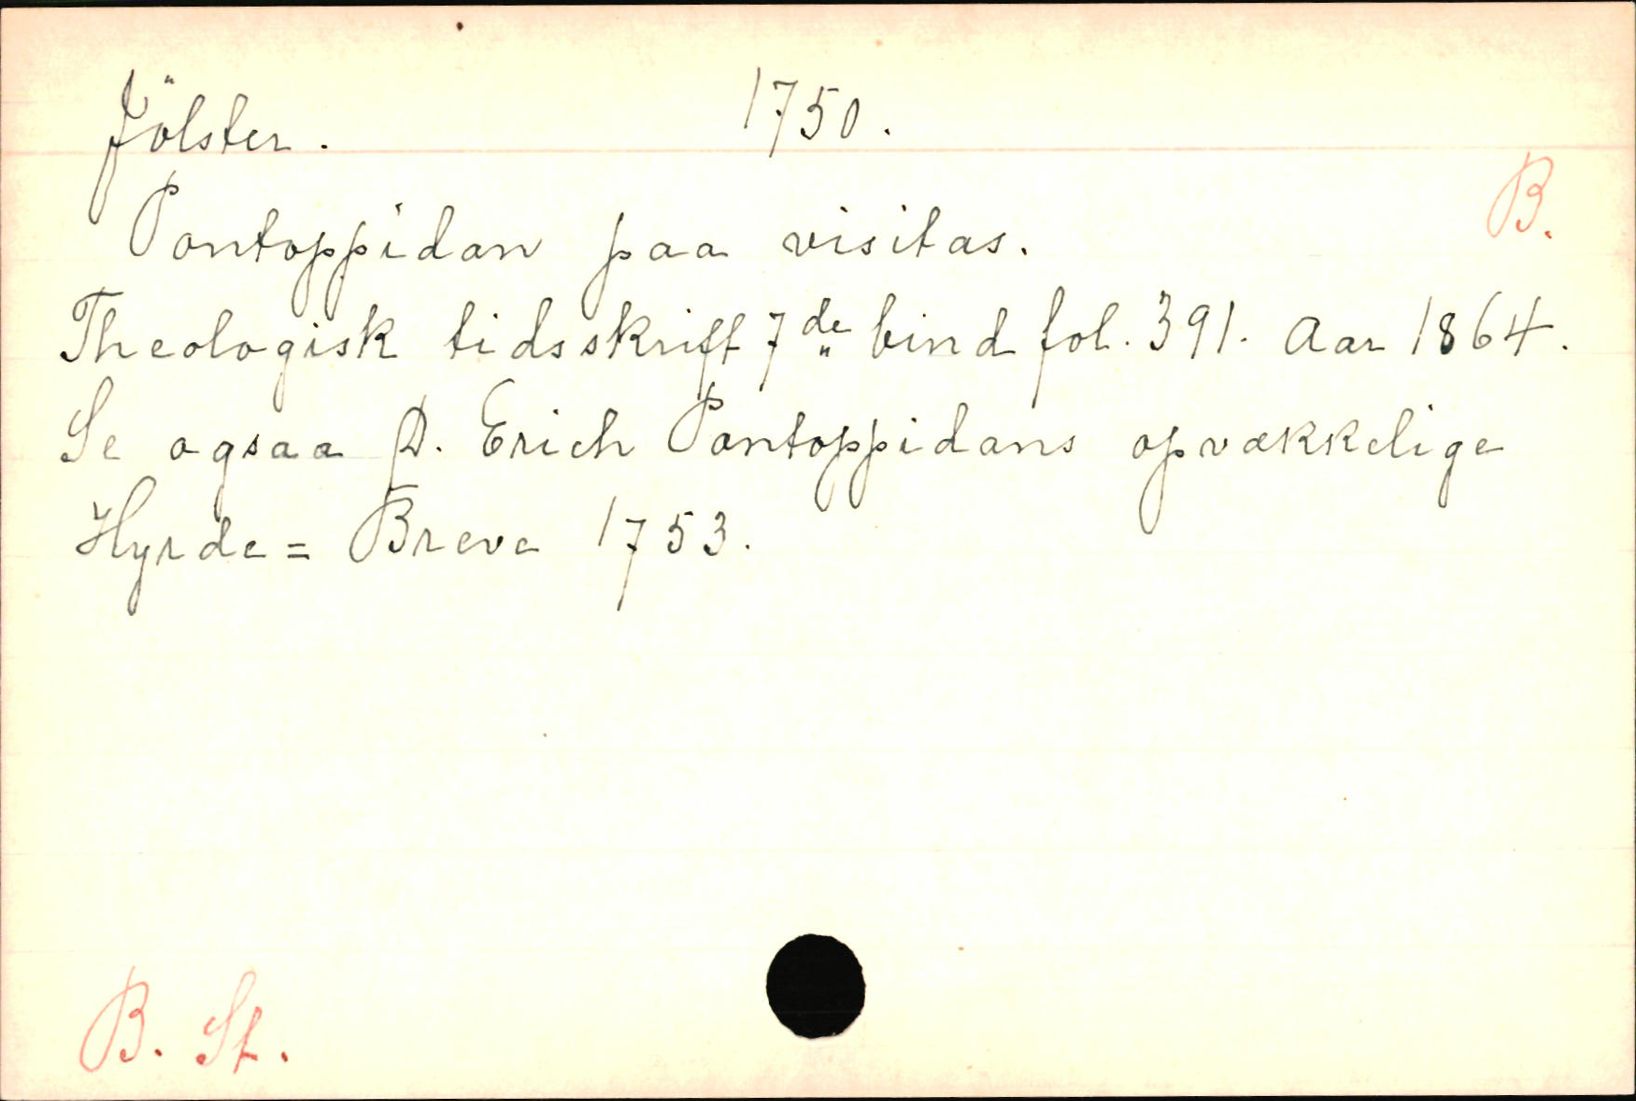 Jölster. 1750.
B.
Pontoppidan paa visitas.
Theologisk tidsskrift 7de bind fol. 391. Aar 1864.
Se ogsaa D. Erich Pontoppidans opvækkelige
Hyrde= Breve 1753.
B. St.